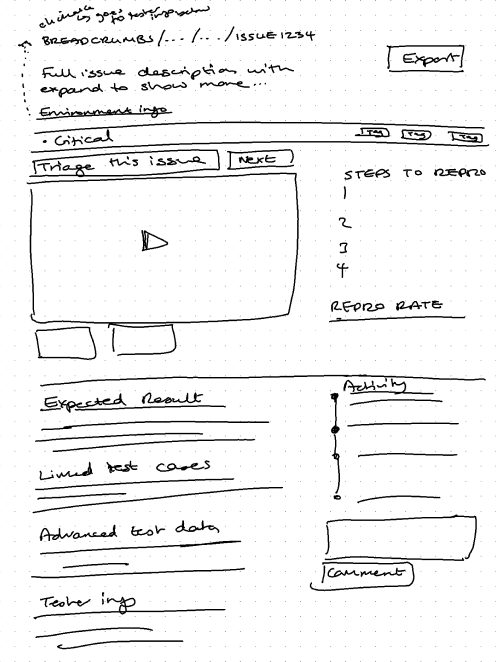 BREADCRUMBS/.../.../ISSUE 1234
Export
Full issue description with
expand to show more...
Environment info
• Critical
Tag Tag Tag
Triage this issue
Next
STEPS TO REPRO
1
2
3
4
REPRO RATE
Expected Result
Activity
Linked test cases
Advanced test data
Comment
Tester info